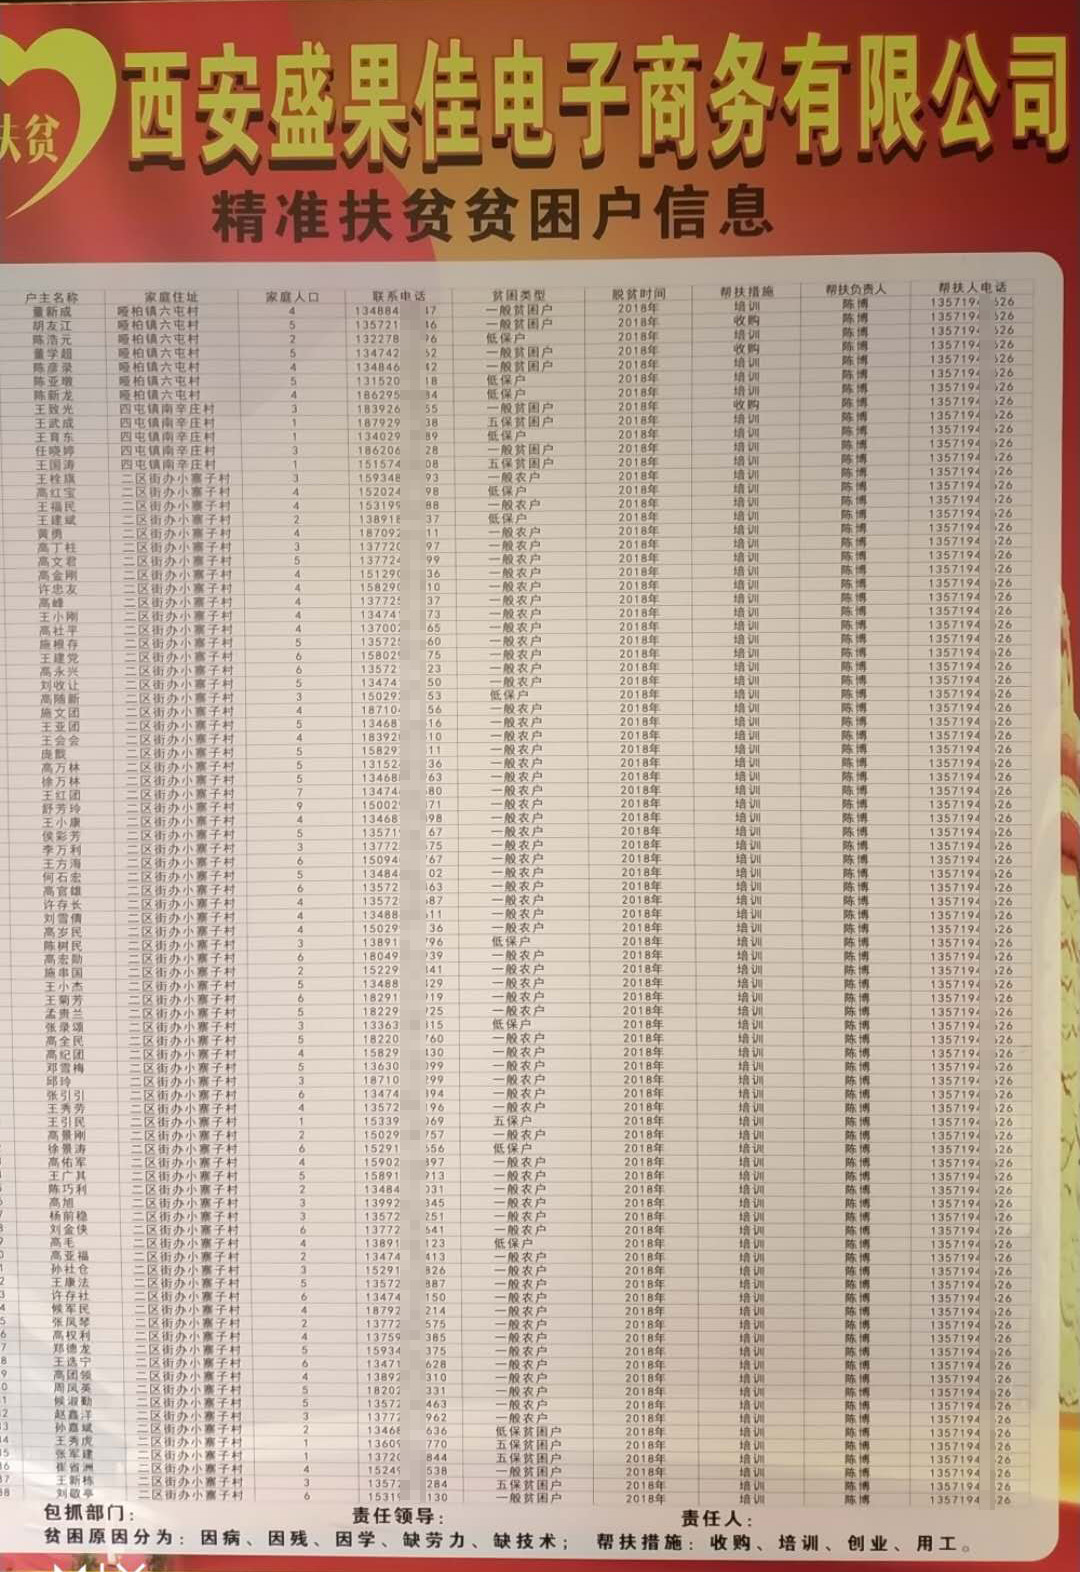 扶贫
西安盛果佳电子商务有限公司
精准扶贫贫困户信息
户主名称 家庭住址 家庭人口 联系电话 贫困类型 脱贫时间 帮扶措施 帮扶负责人 帮扶人电话
董新成 哑柏镇六屯村 4 134884 47 一般贫困户 2018年 培训 陈博 1357194 626
胡友江 哑柏镇六屯村 5 135721 46 一般贫困户 2018年 收购 陈博 1357194 626
陈浩元 哑柏镇六屯村 2 132278 96 低保户 2018年 培训 陈博 1357194 626
董学超 哑柏镇六屯村 5 134742 62 一般贫困户 2018年 收购 陈博 1357194 626
陈彦录 哑柏镇六屯村 4 134846 42 一般贫困户 2018年 培训 陈博 1357194 626
陈亚墩 哑柏镇六屯村 5 131520 18 低保户 2018年 培训 陈博 1357194 626
陈新龙 哑柏镇六屯村 4 186295 84 低保户 2018年 培训 陈博 1357194 626
王致光 四屯镇南辛庄村 3 183926 55 一般贫困户 2018年 收购 陈博 1357194 626
王武成 四屯镇南辛庄村 1 187929 38 五保贫困户 2018年 培训 陈博 1357194 626
王育东 四屯镇南辛庄村 1 134029 89 低保户 2018年 培训 陈博 1357194 626
任晓婷 四屯镇南辛庄村 3 186206 28 一般贫困户 2018年 培训 陈博 1357194 626
王国涛 四屯镇南辛庄村 1 151574 08 五保贫困户 2018年 培训 陈博 1357194 626
王栓旗 二区街办小寨子村 3 159348 93 一般农户 2018年 培训 陈博 1357194 626
高红宝 二区街办小寨子村 4 152024 98 低保户 2018年 培训 陈博 1357194 626
王福民 二区街办小寨子村 4 153199 88 一般农户 2018年 培训 陈博 1357194 626
王建斌 二区街办小寨子村 2 138918 37 低保户 2018年 培训 陈博 1357194 626
黄勇 二区街办小寨子村 4 187092 11 一般农户 2018年 培训 陈博 1357194 626
高丁柱 二区街办小寨子村 3 137720 97 一般农户 2018年 培训 陈博 1357194 626
高文君 二区街办小寨子村 5 137724 99 一般农户 2018年 培训 陈博 1357194 626
高金刚 二区街办小寨子村 4 151290 36 一般农户 2018年 培训 陈博 1357194 626
许忠友 二区街办小寨子村 4 158290 10 一般农户 2018年 培训 陈博 1357194 626
高峰 二区街办小寨子村 4 137725 37 一般农户 2018年 培训 陈博 1357194 626
王小刚 二区街办小寨子村 4 134741 73 一般农户 2018年 培训 陈博 1357194 626
高社平 二区街办小寨子村 4 137002 65 一般农户 2018年 培训 陈博 1357194 626
施根存 二区街办小寨子村 5 135725 60 一般农户 2018年 培训 陈博 1357194 626
王建党 二区街办小寨子村 6 158025 75 一般农户 2018年 培训 陈博 1357194 626
高永兴 二区街办小寨子村 6 13572 23 一般农户 2018年 培训 陈博 1357194 626
刘收让 二区街办小寨子村 5 13474 50 一般农户 2018年 培训 陈博 1357194 626
高随新 二区街办小寨子村 3 15029 53 低保户 2018年 培训 陈博 1357194 626
施文团 二区街办小寨子村 4 18710 56 一般农户 2018年 培训 陈博 1357194 626
王亚团 二区街办小寨子村 5 13468 16 一般农户 2018年 培训 陈博 1357194 626
王会会 二区街办小寨子村 4 18392 10 一般农户 2018年 培训 陈博 1357194 626
庞 二区街办小寨子村 5 15829 11 一般农户 2018年 培训 陈博 1357194 626
高万林 二区街办小寨子村 5 13152 36 一般农户 2018年 培训 陈博 1357194 626
徐万林 二区街办小寨子村 5 13468 63 一般农户 2018年 培训 陈博 1357194 626
王红团 二区街办小寨子村 7 13474 80 一般农户 2018年 培训 陈博 1357194 626
舒芳玲 二区街办小寨子村 9 15002 71 一般农户 2018年 培训 陈博 1357194 626
王小康 二区街办小寨子村 4 13468 98 一般农户 2018年 培训 陈博 1357194 626
侯彩芳 二区街办小寨子村 5 13571 67 一般农户 2018年 培训 陈博 1357194 626
李万利 二区街办小寨子村 3 13772 75 一般农户 2018年 培训 陈博 1357194 626
王方海 二区街办小寨子村 6 15094 67 一般农户 2018年 培训 陈博 1357194 626
何石宏 二区街办小寨子村 5 13484 02 一般农户 2018年 培训 陈博 1357194 626
高官雄 二区街办小寨子村 6 13572 63 一般农户 2018年 培训 陈博 1357194 626
许存长 二区街办小寨子村 4 13572 87 一般农户 2018年 培训 陈博 1357194 626
刘雪倩 二区街办小寨子村 4 13488 11 一般农户 2018年 培训 陈博 1357194 626
高岁民 二区街办小寨子村 4 15029 36 一般农户 2018年 培训 陈博 1357194 626
陈树民 二区街办小寨子村 3 13891 796 低保户 2018年 培训 陈博 1357194 626
高宏勋 二区街办小寨子村 6 18049 39 一般农户 2018年 培训 陈博 1357194 626
施串国 二区街办小寨子村 2 15229 41 一般农户 2018年 培训 陈博 1357194 626
王小杰 二区街办小寨子村 5 13488 29 一般农户 2018年 培训 陈博 1357194 626
王菊芳 二区街办小寨子村 6 18291 19 一般农户 2018年 培训 陈博 1357194 626
孟贵兰 二区街办小寨子村 5 18229 25 一般农户 2018年 培训 陈博 1357194 626
张录颂 二区街办小寨子村 3 13363 15 低保户 2018年 培训 陈博 1357194 626
高全民 二区街办小寨子村 5 18220 60 一般农户 2018年 培训 陈博 1357194 626
高纪团 二区街办小寨子村 4 15829 30 一般农户 2018年 培训 陈博 1357194 626
邓雪梅 二区街办小寨子村 5 13630 99 一般农户 2018年 培训 陈博 1357194 626
邱玲 二区街办小寨子村 3 18710 299 一般农户 2018年 培训 陈博 1357194 626
张引引 二区街办小寨子村 6 13474 94 一般农户 2018年 培训 陈博 1357194 626
王秀劳 二区街办小寨子村 4 13572 96 一般农户 2018年 培训 陈博 1357194 626
王引民 二区街办小寨子村 1 15339 69 五保户 2018年 培训 陈博 1357194 626
高景刚 二区街办小寨子村 2 15029 757 一般农户 2018年 培训 陈博 1357194 626
徐景涛 二区街办小寨子村 6 15291 656 低保户 2018年 培训 陈博 1357194 626
高佑军 二区街办小寨子村 4 15902 397 一般农户 2018年 培训 陈博 1357194 626
王广其 二区街办小寨子村 5 15891 913 一般农户 2018年 培训 陈博 1357194 626
陈巧利 二区街办小寨子村 2 13484 031 一般农户 2018年 培训 陈博 1357194 626
高旭 二区街办小寨子村 3 13992 345 一般农户 2018年 培训 陈博 1357194 626
杨前稳 二区街办小寨子村 3 13572 251 一般农户 2018年 培训 陈博 1357194 626
刘金侠 二区街办小寨子村 6 13772 641 一般农户 2018年 培训 陈博 1357194 626
高毛 二区街办小寨子村 4 13891 123 低保户 2018年 培训 陈博 1357194 626
高亚福 二区街办小寨子村 2 13474 413 一般农户 2018年 培训 陈博 1357194 626
孙社仓 二区街办小寨子村 3 15291 826 一般农户 2018年 培训 陈博 1357194 626
王康法 二区街办小寨子村 5 13572 887 一般农户 2018年 培训 陈博 1357194 626
许存社 二区街办小寨子村 6 13474 150 一般农户 2018年 培训 陈博 1357194 626
候军民 二区街办小寨子村 4 18792 214 一般农户 2018年 培训 陈博 1357194 626
张凤琴 二区街办小寨子村 2 13772 575 一般农户 2018年 培训 陈博 1357194 626
高权利 二区街办小寨子村 4 13759 385 一般农户 2018年 培训 陈博 1357194 626
郑德龙 二区街办小寨子村 5 15934 375 一般农户 2018年 培训 陈博 1357194 626
王选宁 二区街办小寨子村 6 13471 628 一般农户 2018年 培训 陈博 1357194 626
高团领 二区街办小寨子村 4 13892 310 一般农户 2018年 培训 陈博 1357194 626
周凤英 二区街办小寨子村 5 18202 331 一般农户 2018年 培训 陈博 1357194 626
候淑勤 二区街办小寨子村 5 13572 463 一般农户 2018年 培训 陈博 1357194 626
赵鑫洋 二区街办小寨子村 3 13772 962 一般农户 2018年 培训 陈博 1357194 626
孙嘉斌 二区街办小寨子村 2 13468 636 低保贫困户 2018年 培训 陈博 1357194 626
王秀虎 二区街办小寨子村 1 13609 770 五保贫困户 2018年 培训 陈博 1357194 626
张军建 二区街办小寨子村 1 13720 844 五保贫困户 2018年 培训 陈博 1357194 626
崔省洲 二区街办小寨子村 4 15249 538 一般贫困户 2018年 培训 陈博 1357194 626
王新栋 二区街办小寨子村 3 13572 284 五保贫困户 2018年 培训 陈博 1357194 626
刘敬亭 二区街办小寨子村 6 15319 130 一般贫困户 2018年 培训 陈博 1357194 626
包抓部门： 责任领导： 责任人：
贫困原因分为：因病、因残、因学、缺劳力、缺技术； 帮扶措施：收购、培训、创业、用工。